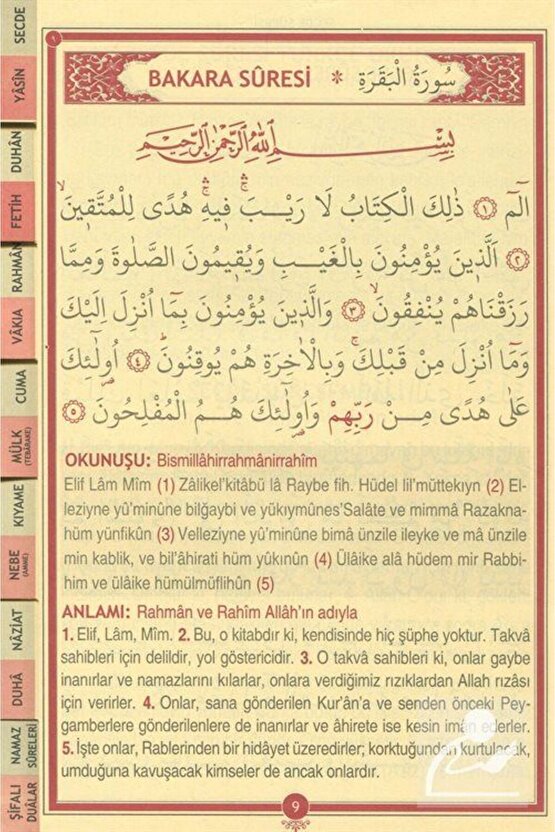 BAKARA SÛRESİ * سُورَةُ الْبَقَرَةِ
بِسْمِ اللّٰهِ الرَّحْمٰنِ الرَّحِيمِ
الٓمٓ ﴿١﴾ ذٰلِكَ الْكِتَابُ لَا رَيْبَۚ فِيهِۚ هُدًى لِلْمُتَّقِينَۙ
﴿٢﴾ اَلَّذِينَ يُؤْمِنُونَ بِالْغَيْبِ وَيُقِيمُونَ الصَّلٰوةَ وَمِمَّا
رَزَقْنَاهُمْ يُنْفِقُونَۙ ﴿٣﴾ وَالَّذِينَ يُؤْمِنُونَ بِمَٓا اُنْزِلَ اِلَيْكَ
وَمَٓا اُنْزِلَ مِنْ قَبْلِكَۚ وَبِالْاٰخِرَةِ هُمْ يُوقِنُونَۜ ﴿٤﴾ اُو۬لٰٓئِكَ
عَلٰى هُدًى مِنْ رَبِّهِمْ وَاُو۬لٰٓئِكَ هُمُ الْمُفْلِحُونَ ﴿٥﴾
OKUNUŞU: Bismillâhirrahmânirrahîm
Elif Lâm Mîm (1) Zâlikel'kitâbü lâ Raybe fih. Hüdel lil'müttekıyn (2) El-
leziyne yü'minûne bilğaybi ve yükıymûnes'Salâte ve mimmâ Razakna-
hüm yünfikûn (3) Velleziyne yü'minûne bimâ ünzile ileyke ve mâ ünzile
min kablik, ve bil'âhirati hüm yûkınûn (4) Ülâike alâ hüdem mir Rabbi-
him ve ülâike hümülmüflihûn (5)
ANLAMI: Rahmân ve Rahîm Allâh'ın adıyla
1. Elif, Lâm, Mîm. 2. Bu, o kitabdır ki, kendisinde hiç şüphe yoktur. Takvâ
sahibleri için delildir, yol göstericidir. 3. O takvâ sahibleri ki, onlar gaybe
inanırlar ve namazlarını kılarlar, onlara verdiğimiz rızıklardan Allah rızâsı
için verirler. 4. Onlar, sana gönderilen Kur'ân'a ve senden önceki Pey-
gamberlere gönderilenlere de inanırlar ve âhirete ise kesin imân ederler.
5. İşte onlar, Rablerinden bir hidâyet üzeredirler; korktuğundan kurtulacak,
umduğuna kavuşacak kimseler de ancak onlardır.
9
٩
SECDE
YÂSİN
DUHÂN
FETİH
RAHMÂN
VÂKIA
CUMA
MÜLK
(TEBÂRAKE)
KIYAME
NEBE
(AMME)
NÂZİAT
DUHÂ
NAMAZ
SÛRELERİ
ŞİFALI
DUÂLAR